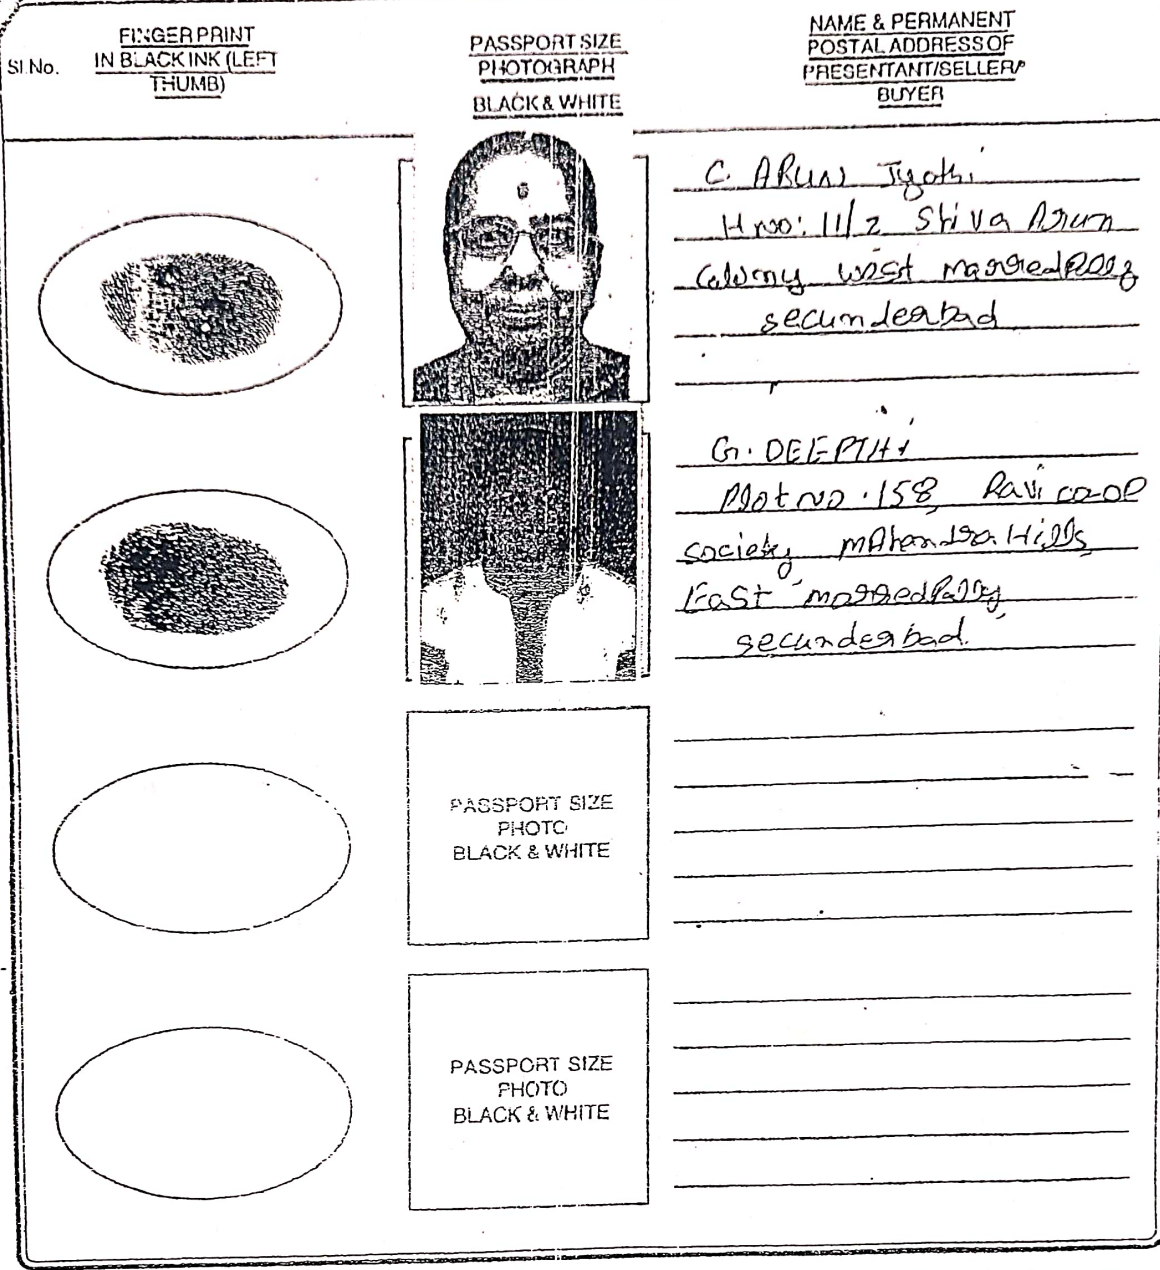 Sl.No.
FINGER PRINT
IN BLACK INK (LEFT
THUMB)
PASSPORT SIZE
PHOTOGRAPH
BLACK & WHITE
NAME & PERMANENT
POSTAL ADDRESS OF
PRESENTANT/SELLER/
BUYER
C. ARUN Jyothi
H no: 11/2 Shiva Arun
Colony west marredpally
secunderbad
G. DEEPTHi
Plot no. 158, Ravi co-op
society mAhendra Hills,
East marredpally,
secunderbad.
PASSPORT SIZE
PHOTO
BLACK & WHITE
PASSPORT SIZE
PHOTO
BLACK & WHITE